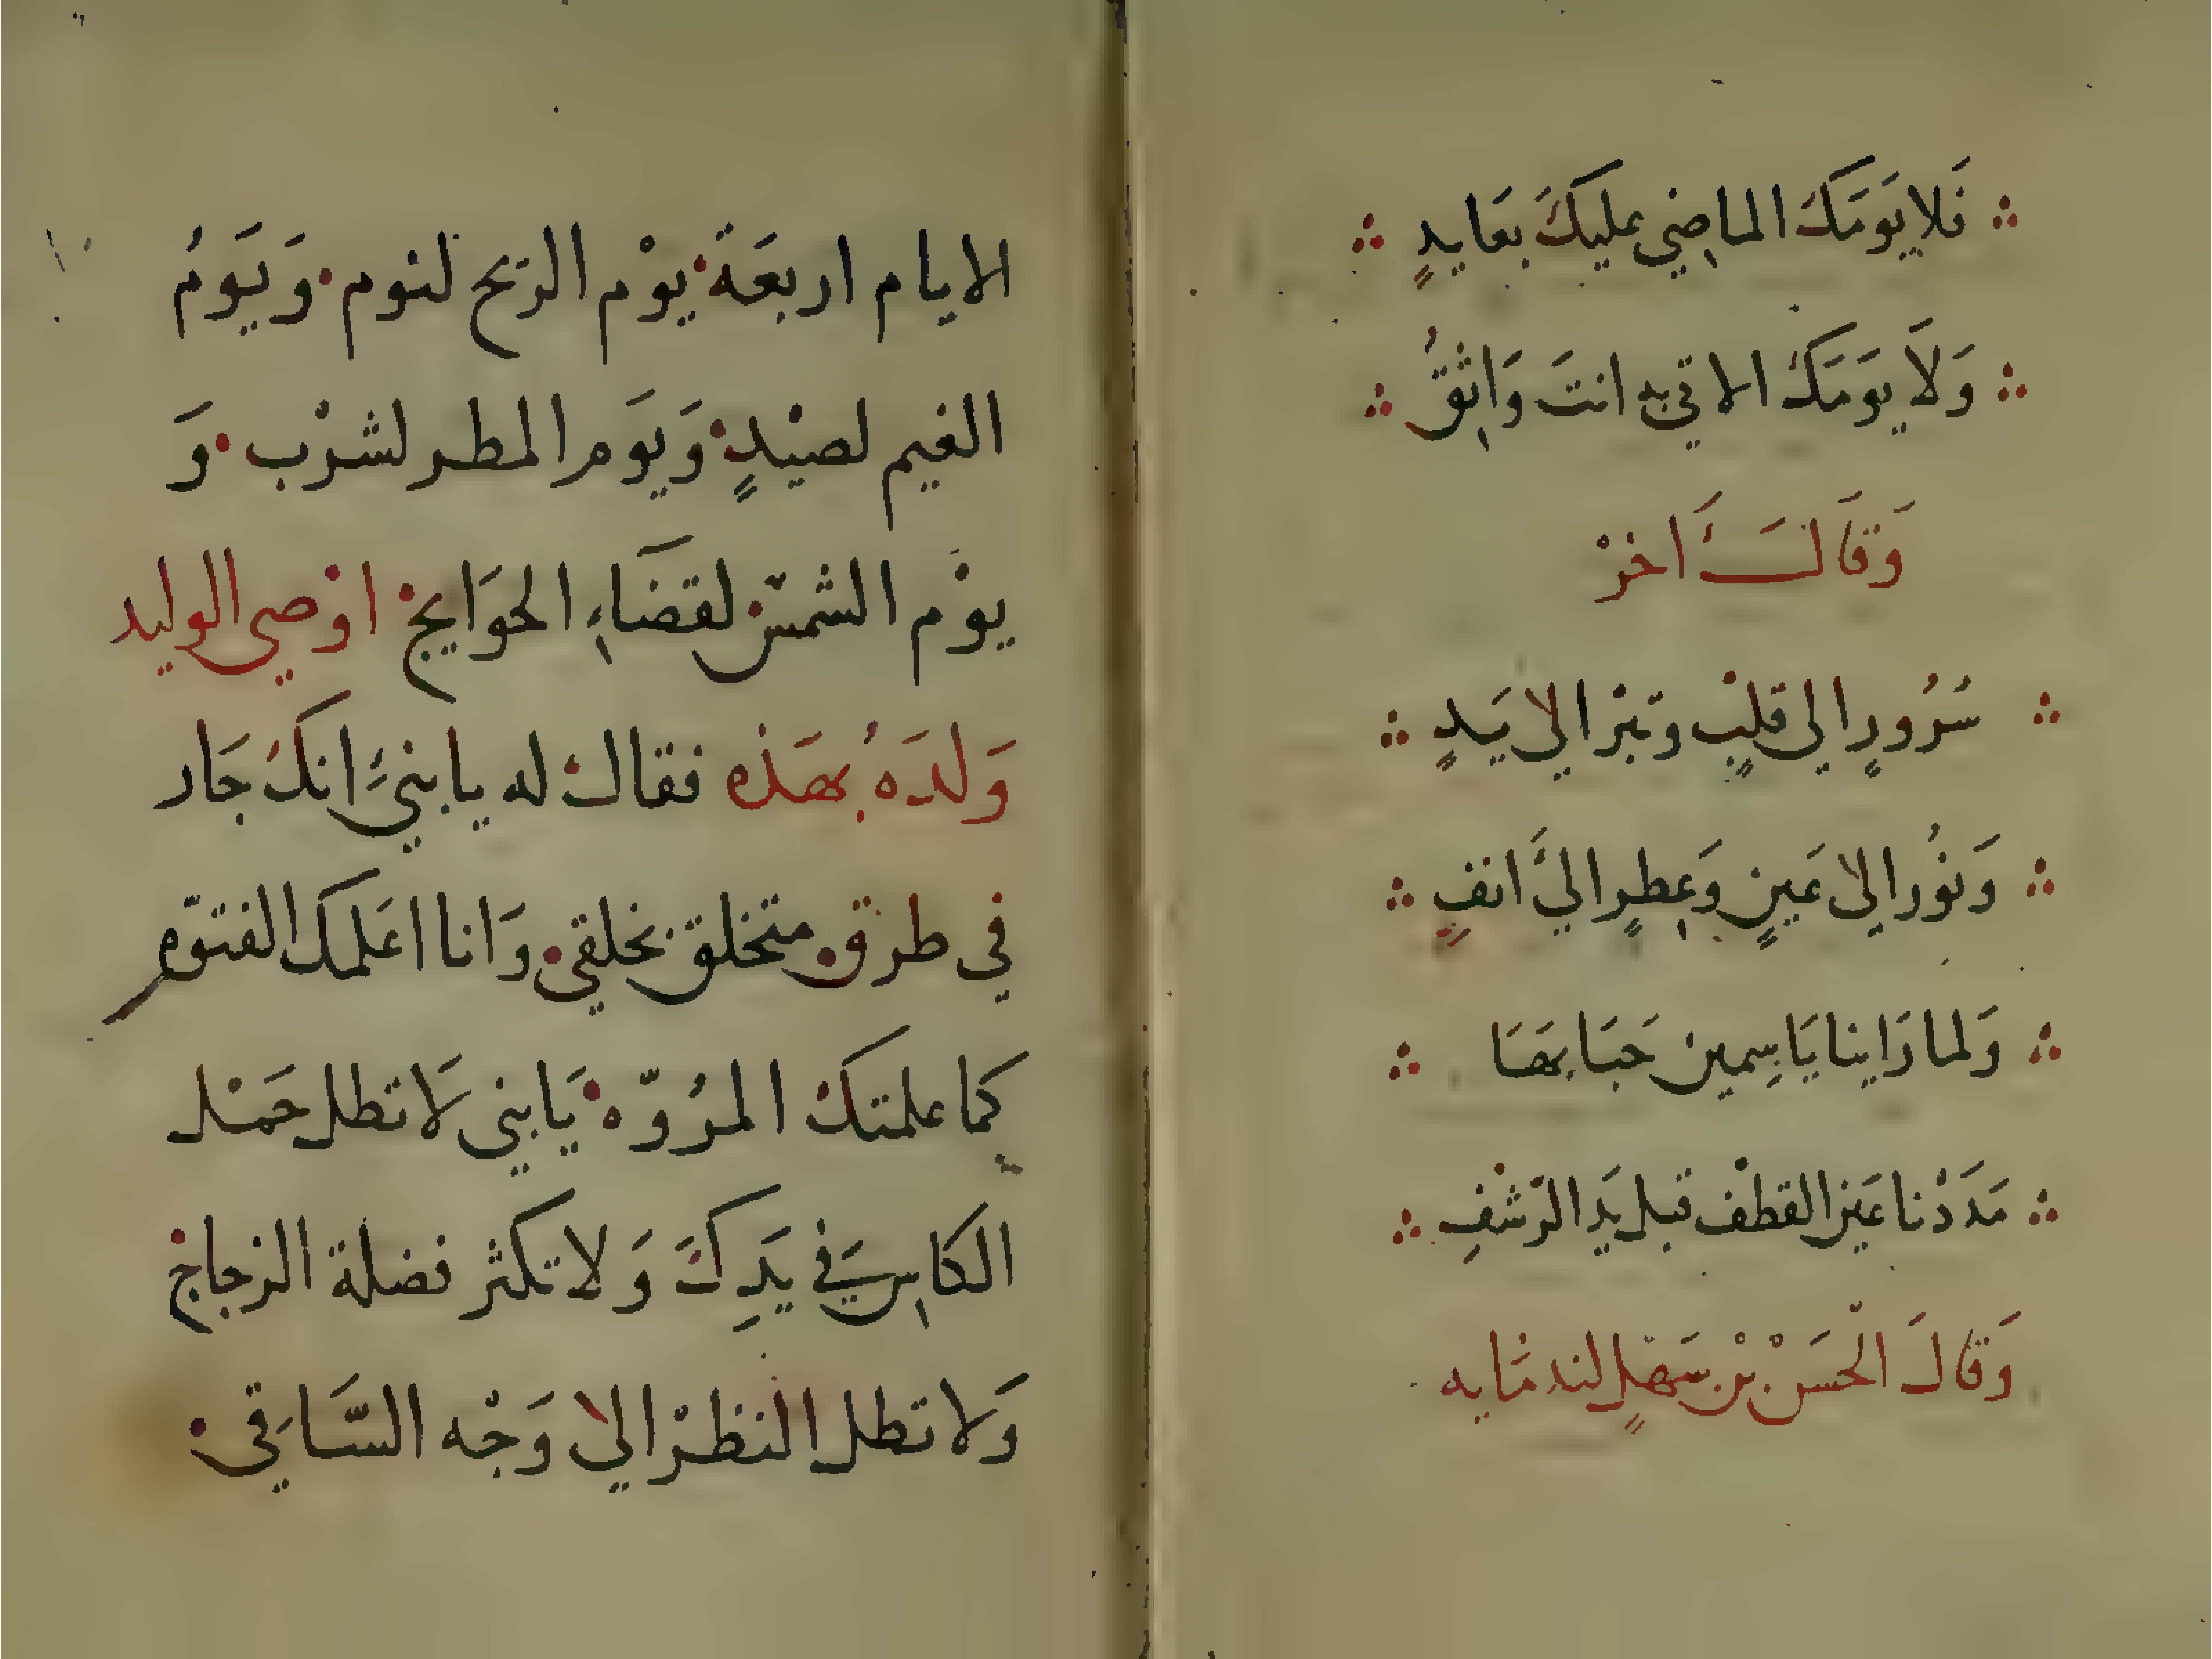 فَلا يَومَكَ الماضِي عليكَ بعَايدٍ
وَلَا يَومَكَ الاتي به انتَ وَاثِقُ
وَقَالَ اَخرْ
سُرُورٍ الى قلبٍ وتبرْ الى يَدٍ
وَنُور الى عَينٍ وَعِطرٍ اليَّ انفٍ
وَلما رَاينا يَاسِمين حَبَا بهَا
مَدَدْنا عَين القطف قبل يَدِ الرّشفِ
وَقالَ الْحَسَنْ بْن سَهلٍ لندمَايه
الايام اربعَة يوْم الرّيح لنوم وَيَومُ
الغيم لصيْدٍ وَيوَم المطر لشرْب وَ
يوْم الشمسْ لقضَاءِ الحوَايجْ اوْصى الوليد
وَلدَهُ بهَذه فقال له يابنيَّ انكَ جَار
في طرْق متخلق بخلقي وَانا اعَلمك الفتوّه
كما علمتكَ المرُوّه يَابني لَا تطل حَمْل
الكاسِ في يَدِكَ وَلا تكثر فضلة الزجاجْ
وَلا تطل النظرْ الى وَجْه السَّاقي